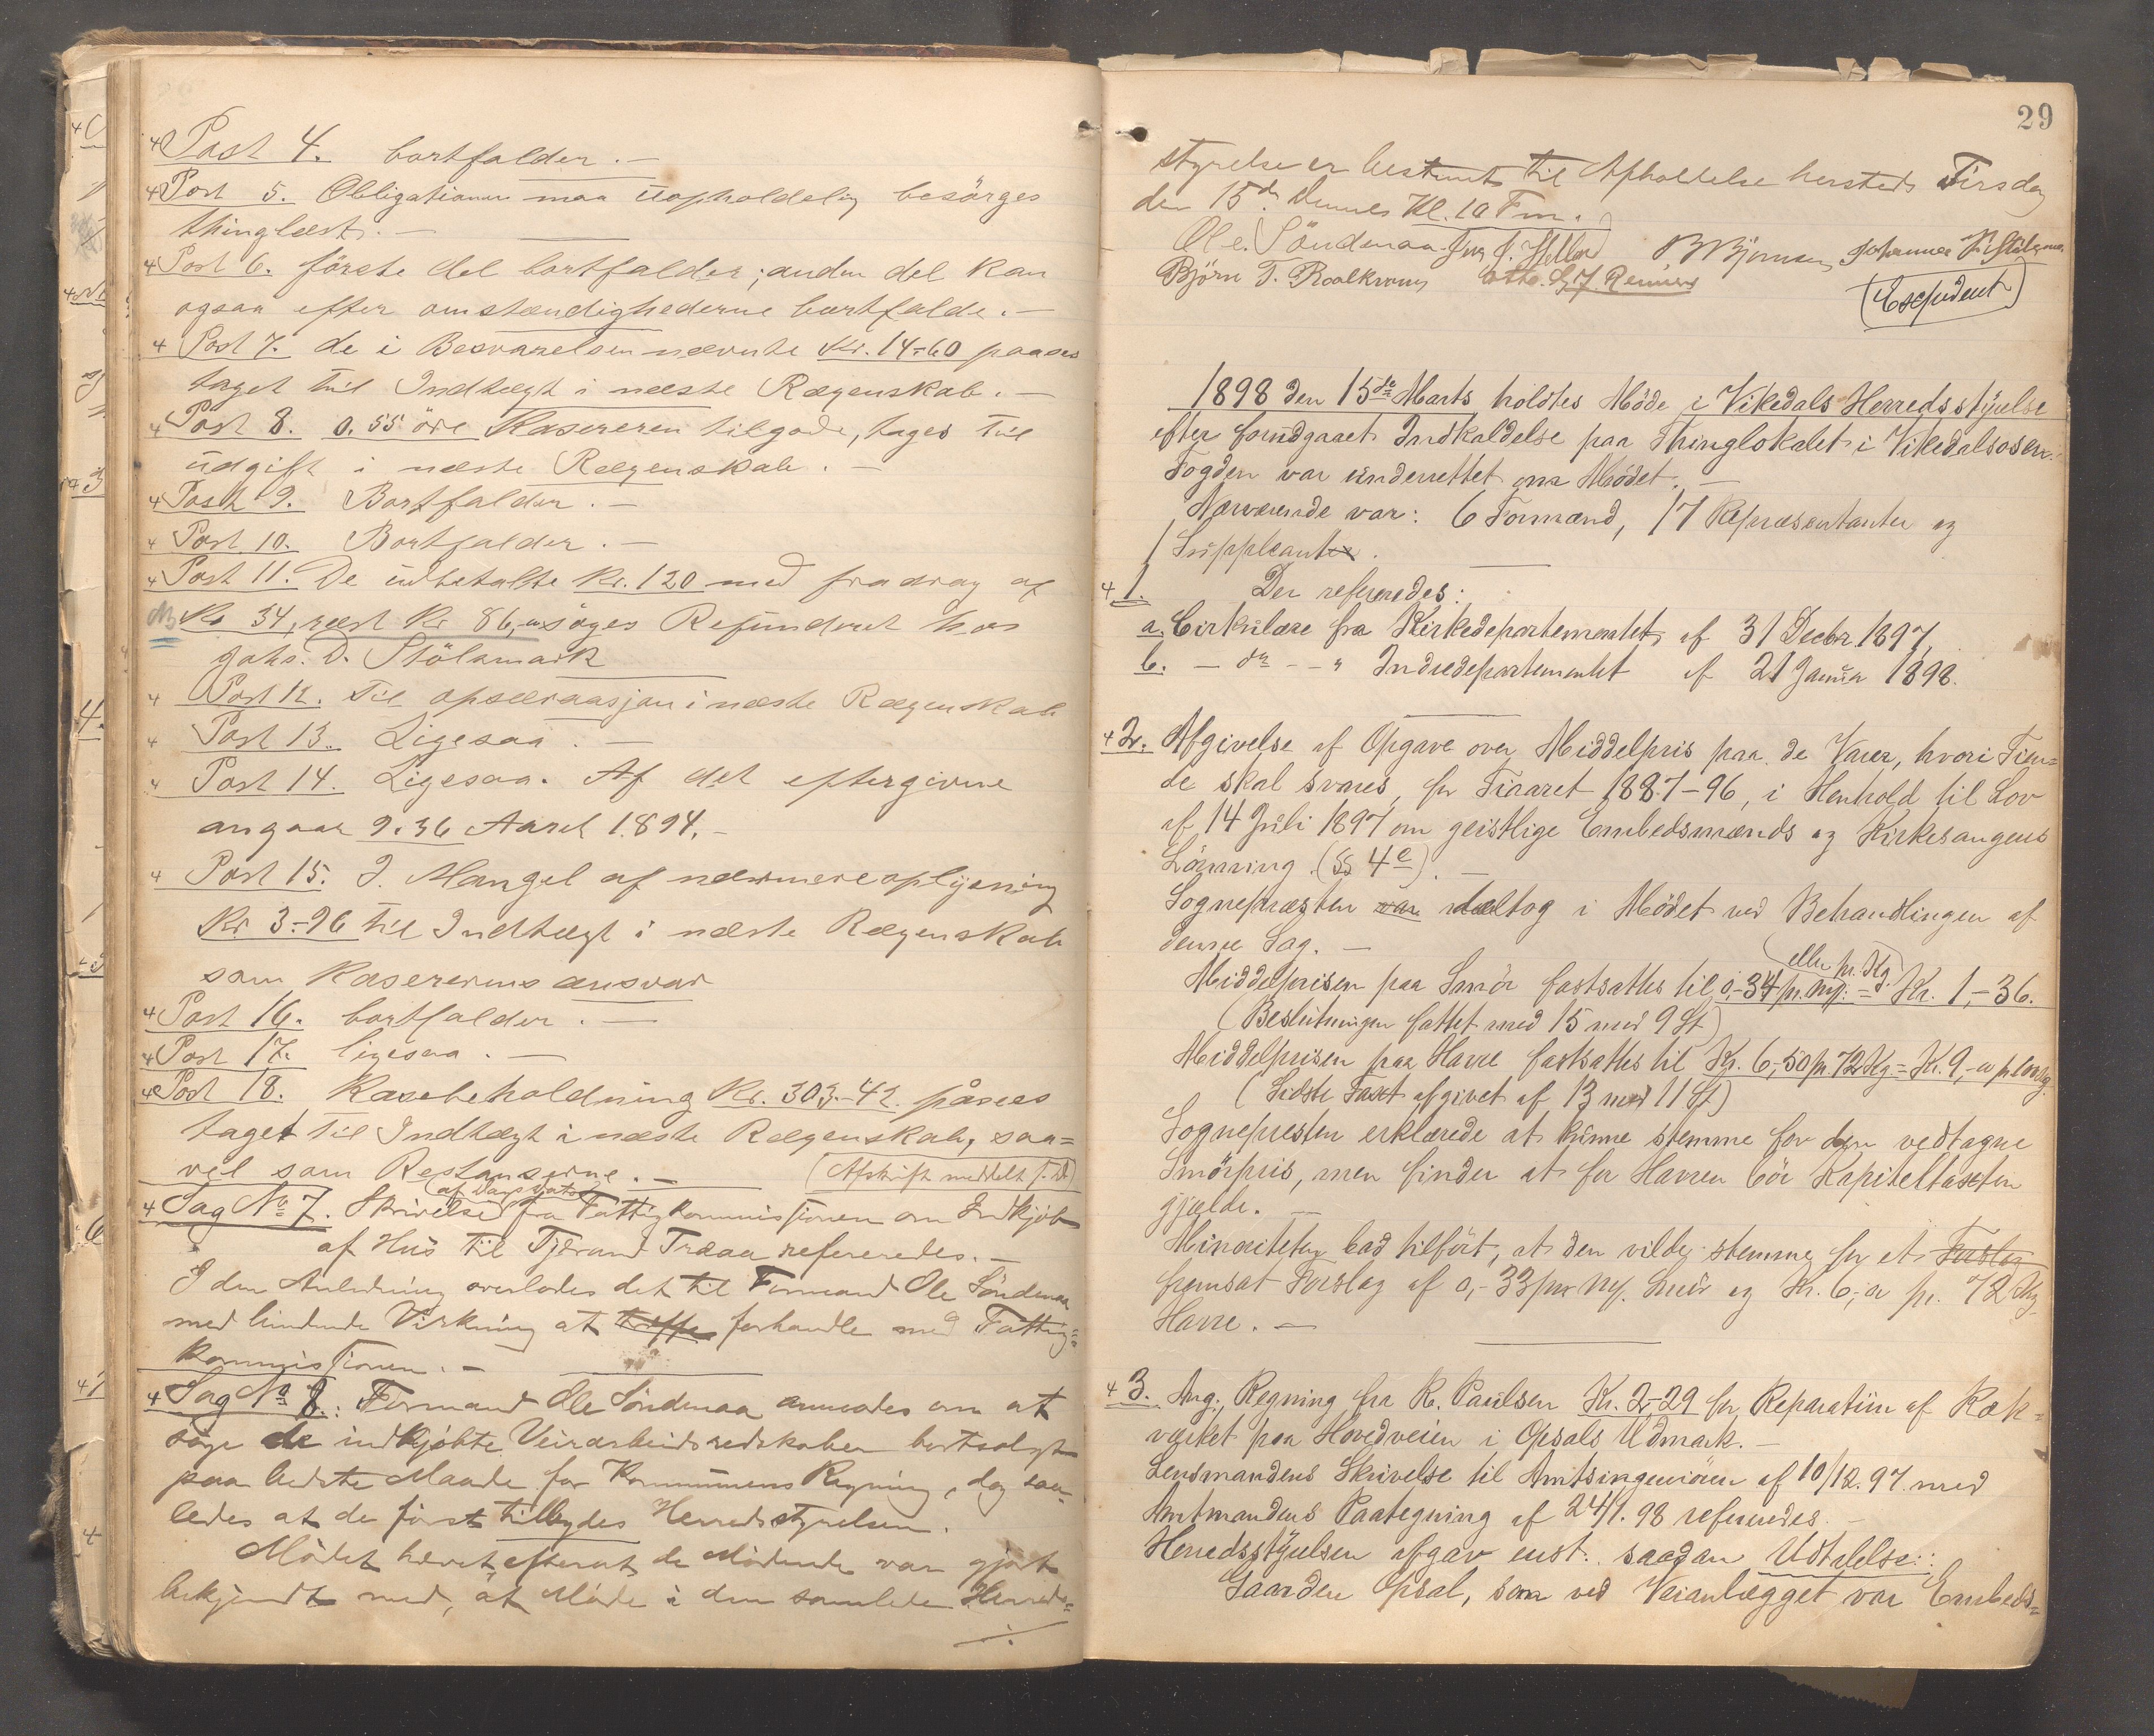 Post 4. bortfalder. —
Post 5. Obligationen maa uopholdelig besörges
thinglæst. —
Post 6. förste del bortfalder; anden del kan
ogsaa efter omstændighederne bortfalde. —
Post 7. de i Besvarelsen nævnte Kr. 14-60 paasees
taget til Indtægt i næste Rægenskab. —
Post 8. 0.55 öre Kasereren tilgode, tages til
udgift i næste Rægenskab. —
Post 9. Bortfalder. —
Post 10. Bortfalder. —
Post 11. De udbetalte Kr. 120 med fradrag af
Kr 34, rest Kr 86, söges Refunderet hos
Johs. D. Stölsmark
Post 12. Til opservasjon i næste Rægenskab
Post 13. Ligesaa. —
Post 14. Ligesaa. Af det eftergivne
angaar 9.36 Aaret 1894. —
Post 15. I Mangel af nærmere oplysning
Kr 3-96 til Indtægt i næste Rægenskab
som Kasererens ansvar
Post 16. bortfalder. —
Post 17. ligesaa. —
Post 18. Kassebeholdning Kr. 303-42. påsees
taget til Indtægt i næste Rægenskab, saa=
vel som Restanserne. — (Afskrift meddelt)
Sag No 7. Skrivelse af Dags Dato fra Fattigkommissionen om Indkjöb
af Hus til Tjeran Traaa refereredes. —
I den Anledning overlodes det til Formand Ole Söndenaa
med bindende Virkning at træffe forhandle med Fattig=
kommissionen. —
Sag No 8.: Formand Ole Söndenaa anmodes om at
söge de indkjöbte Veiarbeidsredskaber bortsolgt
paa bedste Maade for Kommunens Regning, dog saa=
ledes at de först tilbydes Herredsstyrelsen.
Mödet hævet, efterat de Mödende var gjort
bekjendt med, at Möde i den samlede Herreds=
./.
29
styrelse er bestemt til Afholdelse hersteds Tirsdag
den 15de Dennes Kl. 10 Fm.
Ole Söndenaa B Björnsen Johannes
Björn T. Roalkvam
(Expedert)
1898 den 15de Marts holdtes Möde i Vikedals Herredsstyrelse
efter forudgaaet Indkaldelse paa Thinglokalet i Vikedalsosen.
Fogden var underrettet om Mödet. —
Nærværende var: 6 Formænd, 17 Repræsentanter og
1 Suppleant.
1. Der refereredes:
a. Cirkulære fra Kirkedepartementet af 31 Decbr. 1897.
b. — do — — " Indredepartementet af 21 Januar 1898.
2. Afgivelse af Opgave over Middelpris paa de Varer, hvori Tien=
de skal svares, for Tiaaret 1887-96, i Henhold til Lov
af 14 Juli 1897 om geistlige Embedsmænds og Kirkesangeres
Lönning (§ 4 e). —
Sognepræsten var deltog i Mödet ved Behandlingen af
denne Sag. —
Middelprisen paa Smör fastsattes til 0,-34 pr. Mrk. = eller pr. Kg. Kr. 1,-36.
(Beslutningen fattet med 15 mod 9 St)
Middelprisen paa Havre fastsattes til Kr. 6,-50 pr. 72 Kg = Kr. 9,-
(Sidste Taxt afgivet af 13 mod 11 St)
Sognepresten erklærede at kunne stemme for den vedtagne
Smörpris, men finder at for Havren bör Kapiteltaxten
gjælde. —
Minoriteten bad tilfört, at den vilde stemme for et Forslag
fremsat Forslag af 0,-33 pr. Mrk. Smör og Kr. 6,- pr. 72 Kg
Havre. —
3. Ang. Regning fra R. Paulsen Kr. 2,-29 for Reparation af Ræk=
værket paa Hovedveien i Opsals Udmark. —
Lensmandens Skrivelse til Amtsingeniören af 10/12. 97 med
Amtmandens Paategning af 24/1. 98 refereredes. —
Herredsstyrelsen afgav enst. saadan Udtalelse:
Gaarden Opsal, som ved Veianlægget var Embeds=